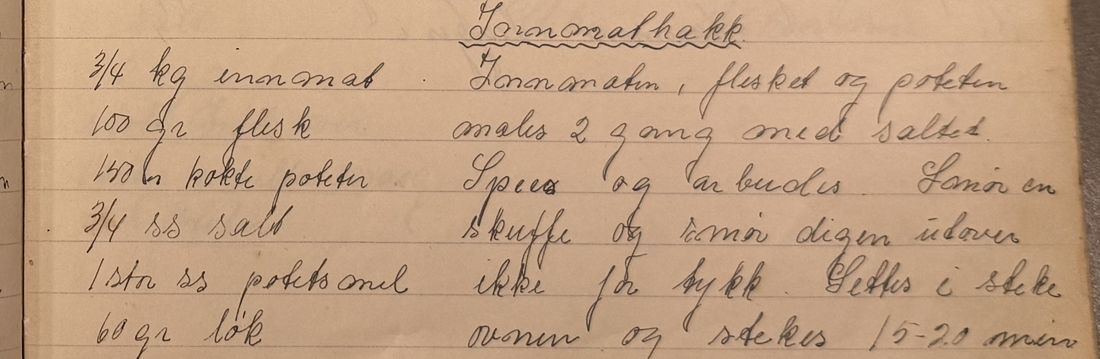 Innmathakk
3/4 kg innmat
100 gr flesk
150 " kokte poteter
3/4 ss salt
1 stor ss potetsmel
60 gr løk
Innmaten, flesket og poteten
males 2 gang med saltet.
og arbeides. Smør en
skuffe og smør deigen utover
ikke for tykk. Settes i steke
ovnen og stekes 15-20 min